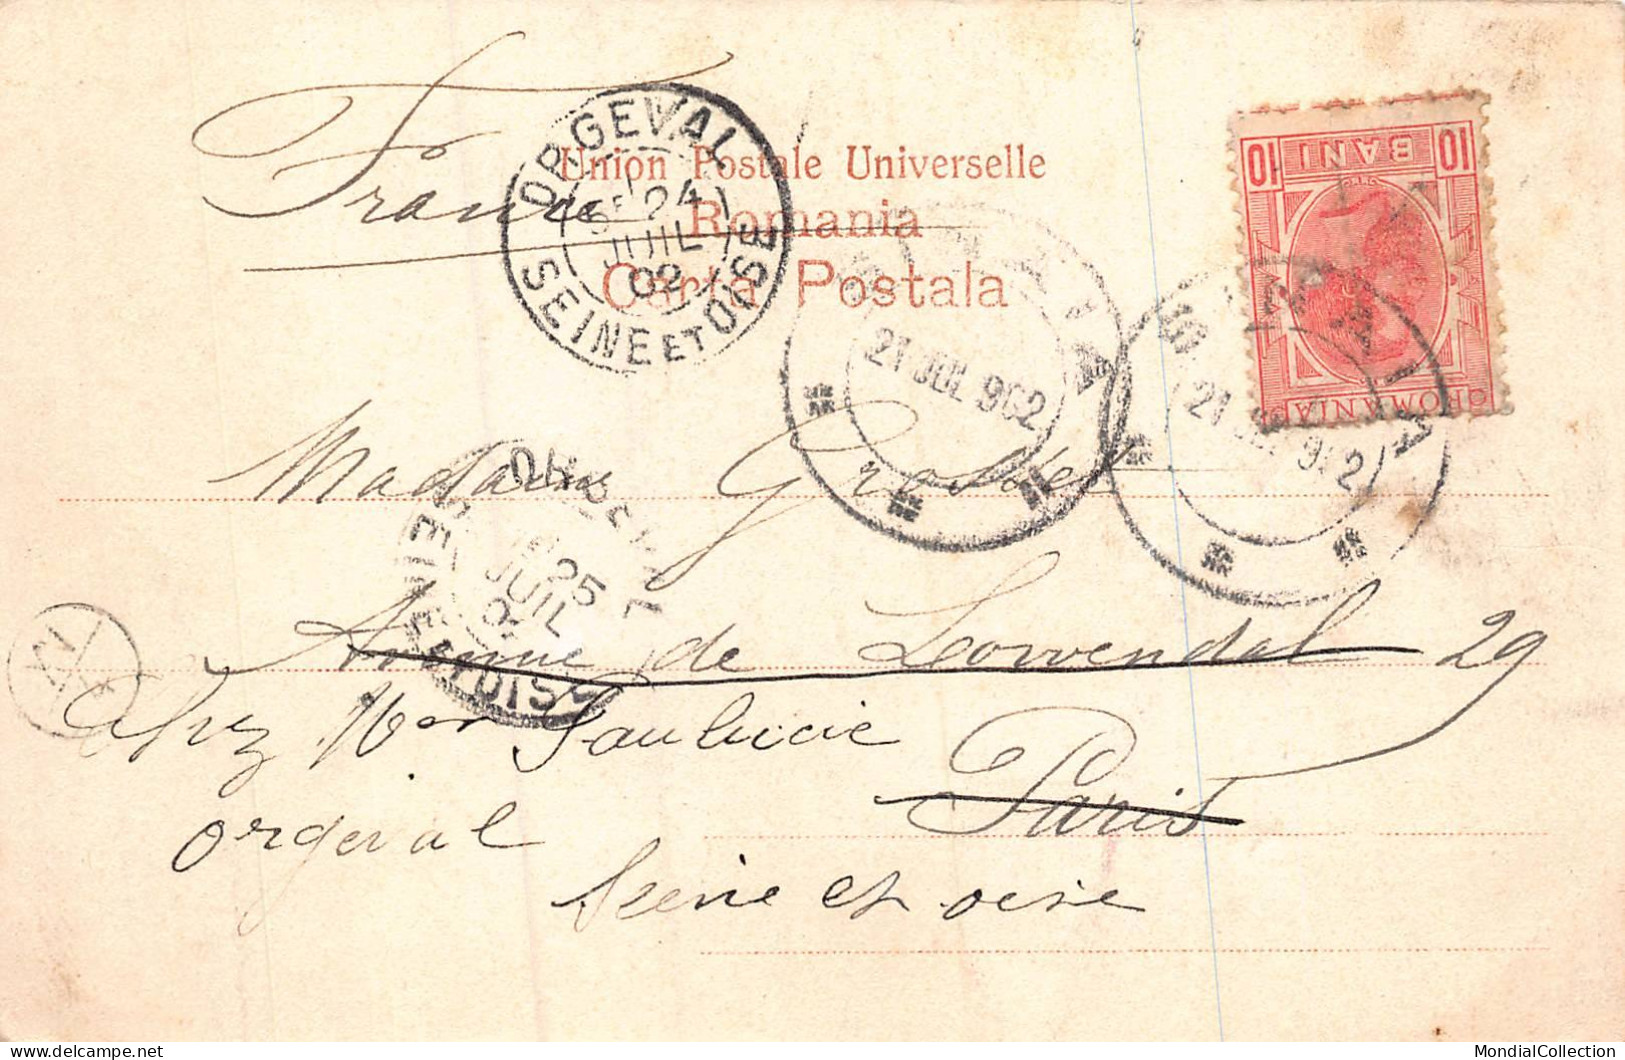 France
Union Postale Universelle
Romania
Carta Postala
ORGEVAL
24
JUIL
02
SEINE ET OISE
10 BANI 10
ROMANIA
21 JUL 902
21 JUL 902
Madame
ORGEVAL
25
JUIL
SEINE ET OISE
Avenue de Lowendal 29
chez Mer
Paris
orgeval
Seine et oise
MondialCollection.com